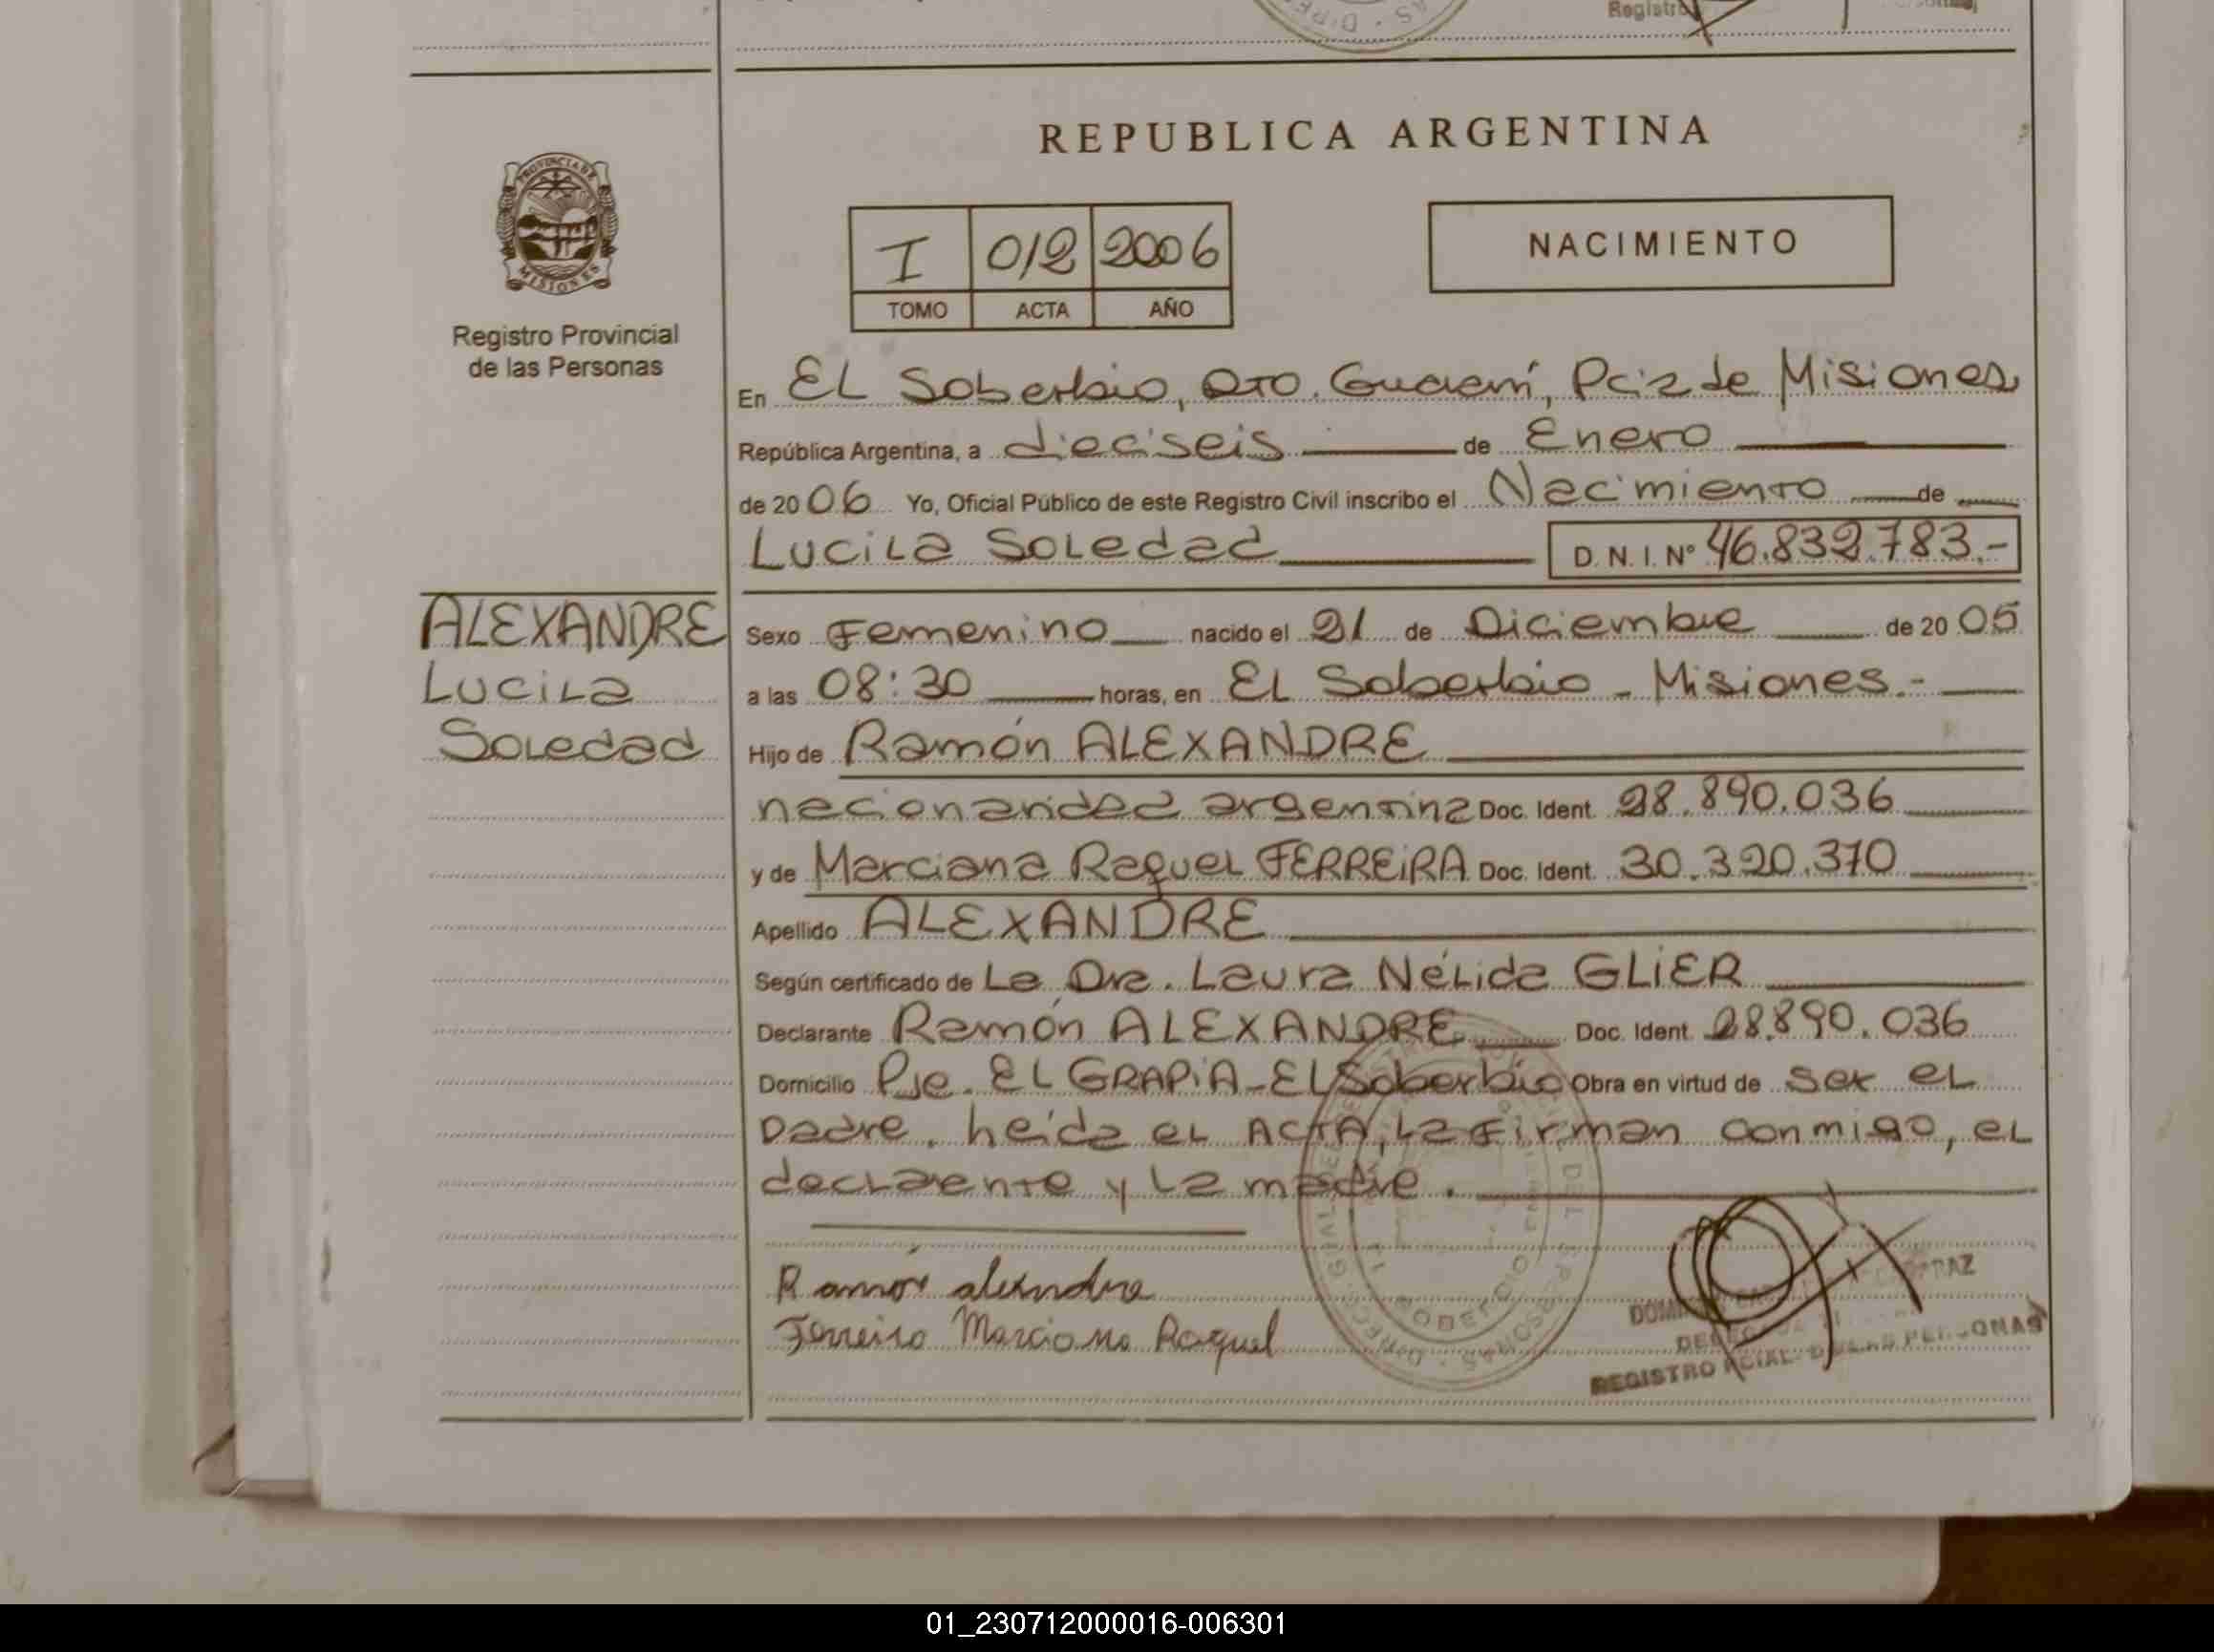 REPUBLICA ARGENTINA
PROVINCIA DE
MISIONES
Registro Provincial
de las Personas
I 012 2006
TOMO ACTA AÑO
NACIMIENTO
En EL Soberbio, DTO. Guaraní, Pcia de Misiones
República Argentina, a dieciseis de Enero
de 2006 Yo, Oficial Público de este Registro Civil inscribo el Nacimiento de
Lucila Soledad D.N.I. Nº 46.832.783.-
ALEXANDRE
Lucila
Soledad
Sexo Femenino nacido el 21 de Diciembre de 2005
a las 08:30 horas, en EL Soberbio - Misiones.-
Hijo de Ramón ALEXANDRE
nacionalidad argentina Doc. Ident. 28.890.036
y de Marciana Raquel FERREIRA Doc. Ident. 30.320.370
Apellido ALEXANDRE
Según certificado de La Dra. Laura Nélida GLIER
Declarante Ramón ALEXANDRE Doc. Ident. 28.890.036
Domicilio Pje. EL GRAPIA - EL Soberbio Obra en virtud de ser el
padre. heida el ACTA, La firman conmigo, el
declaente y La madre.
Ramón alexndre
Ferreira Marciana Raquel
REGISTRO PCIAL. DE LAS PERSONAS
01_230712000016-006301